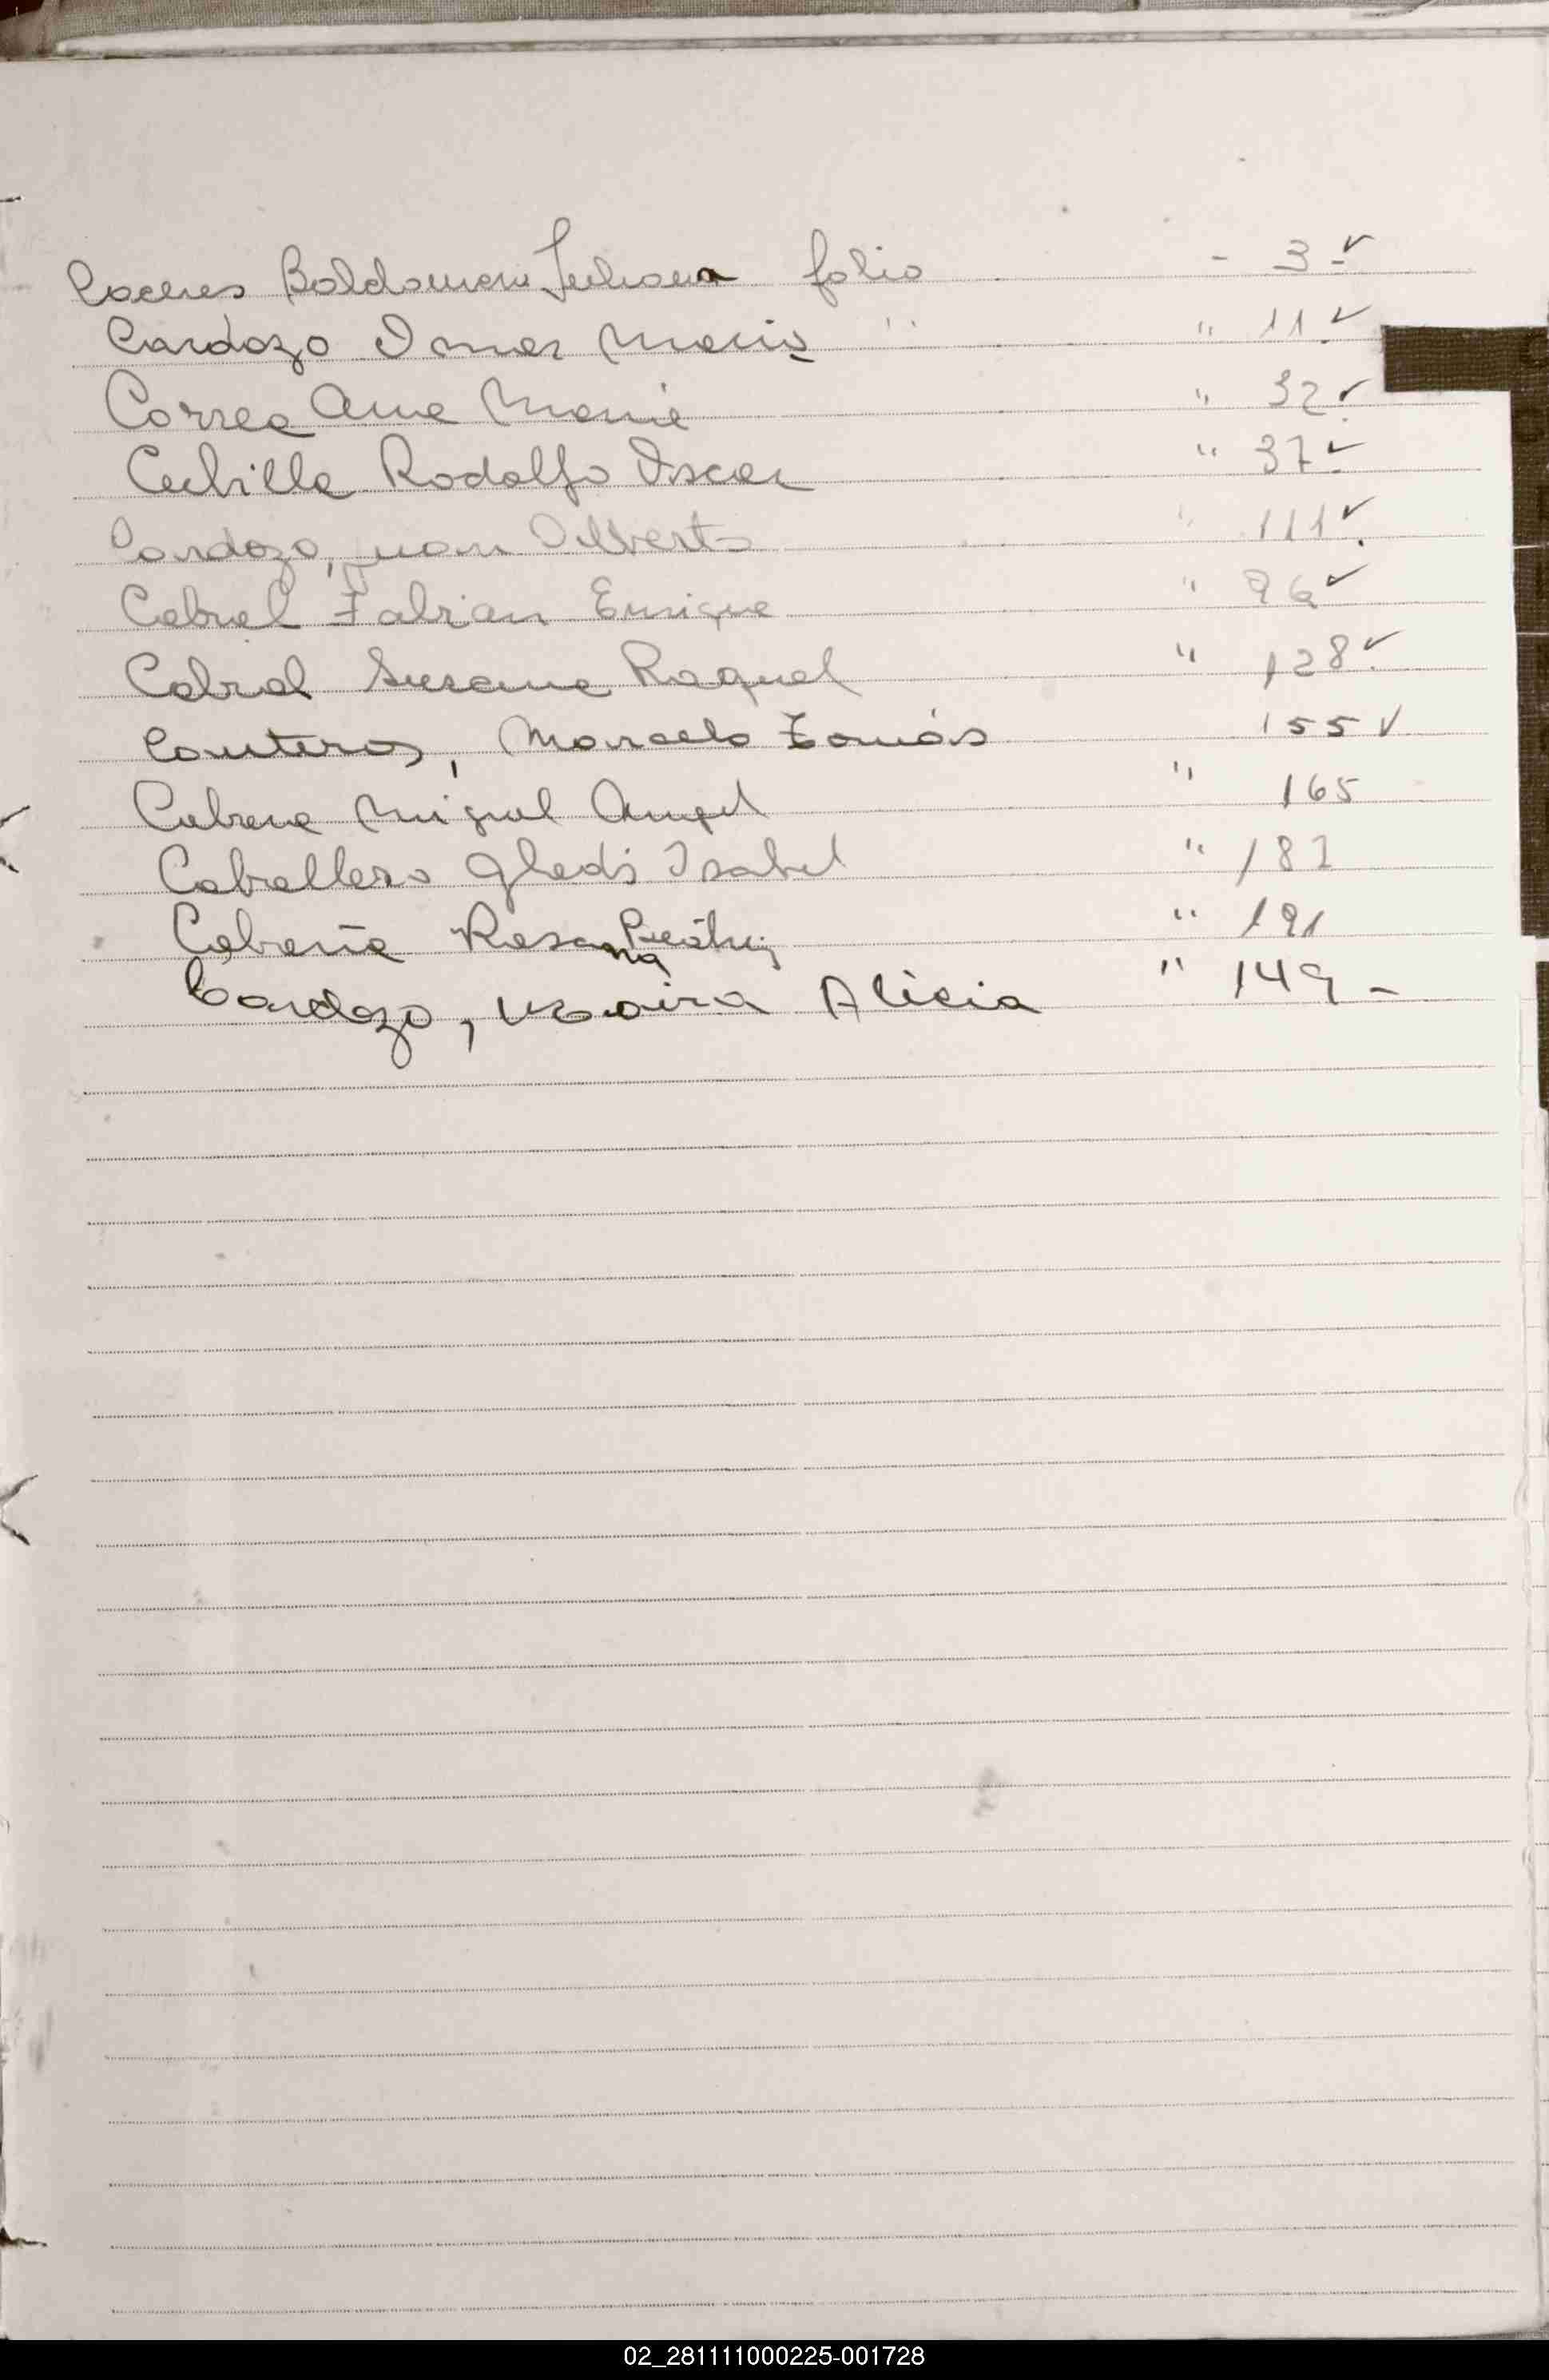 Caceres Baldomera Juliana folio - 3 ✓
Cardozo Omar Maria " " 11 ✓
Correa Ana Maria " 32 ✓
Cubilla Rodolfo Oscar " 37 ✓
Cardozo, Juan Gilberto " 111 ✓
Cabral Fabian Enrique " 96 ✓
Cabral Susana Raquel " 128 ✓
Conteros, Marcelo Tomás 155 ✓
Cabrera Miguel Angel " 165
Caballero Gladis Isabel " 182
Cabrera Rosana Beatriz " 191
Cardozo, María Alicia " 149 -
02_281111000225-001728